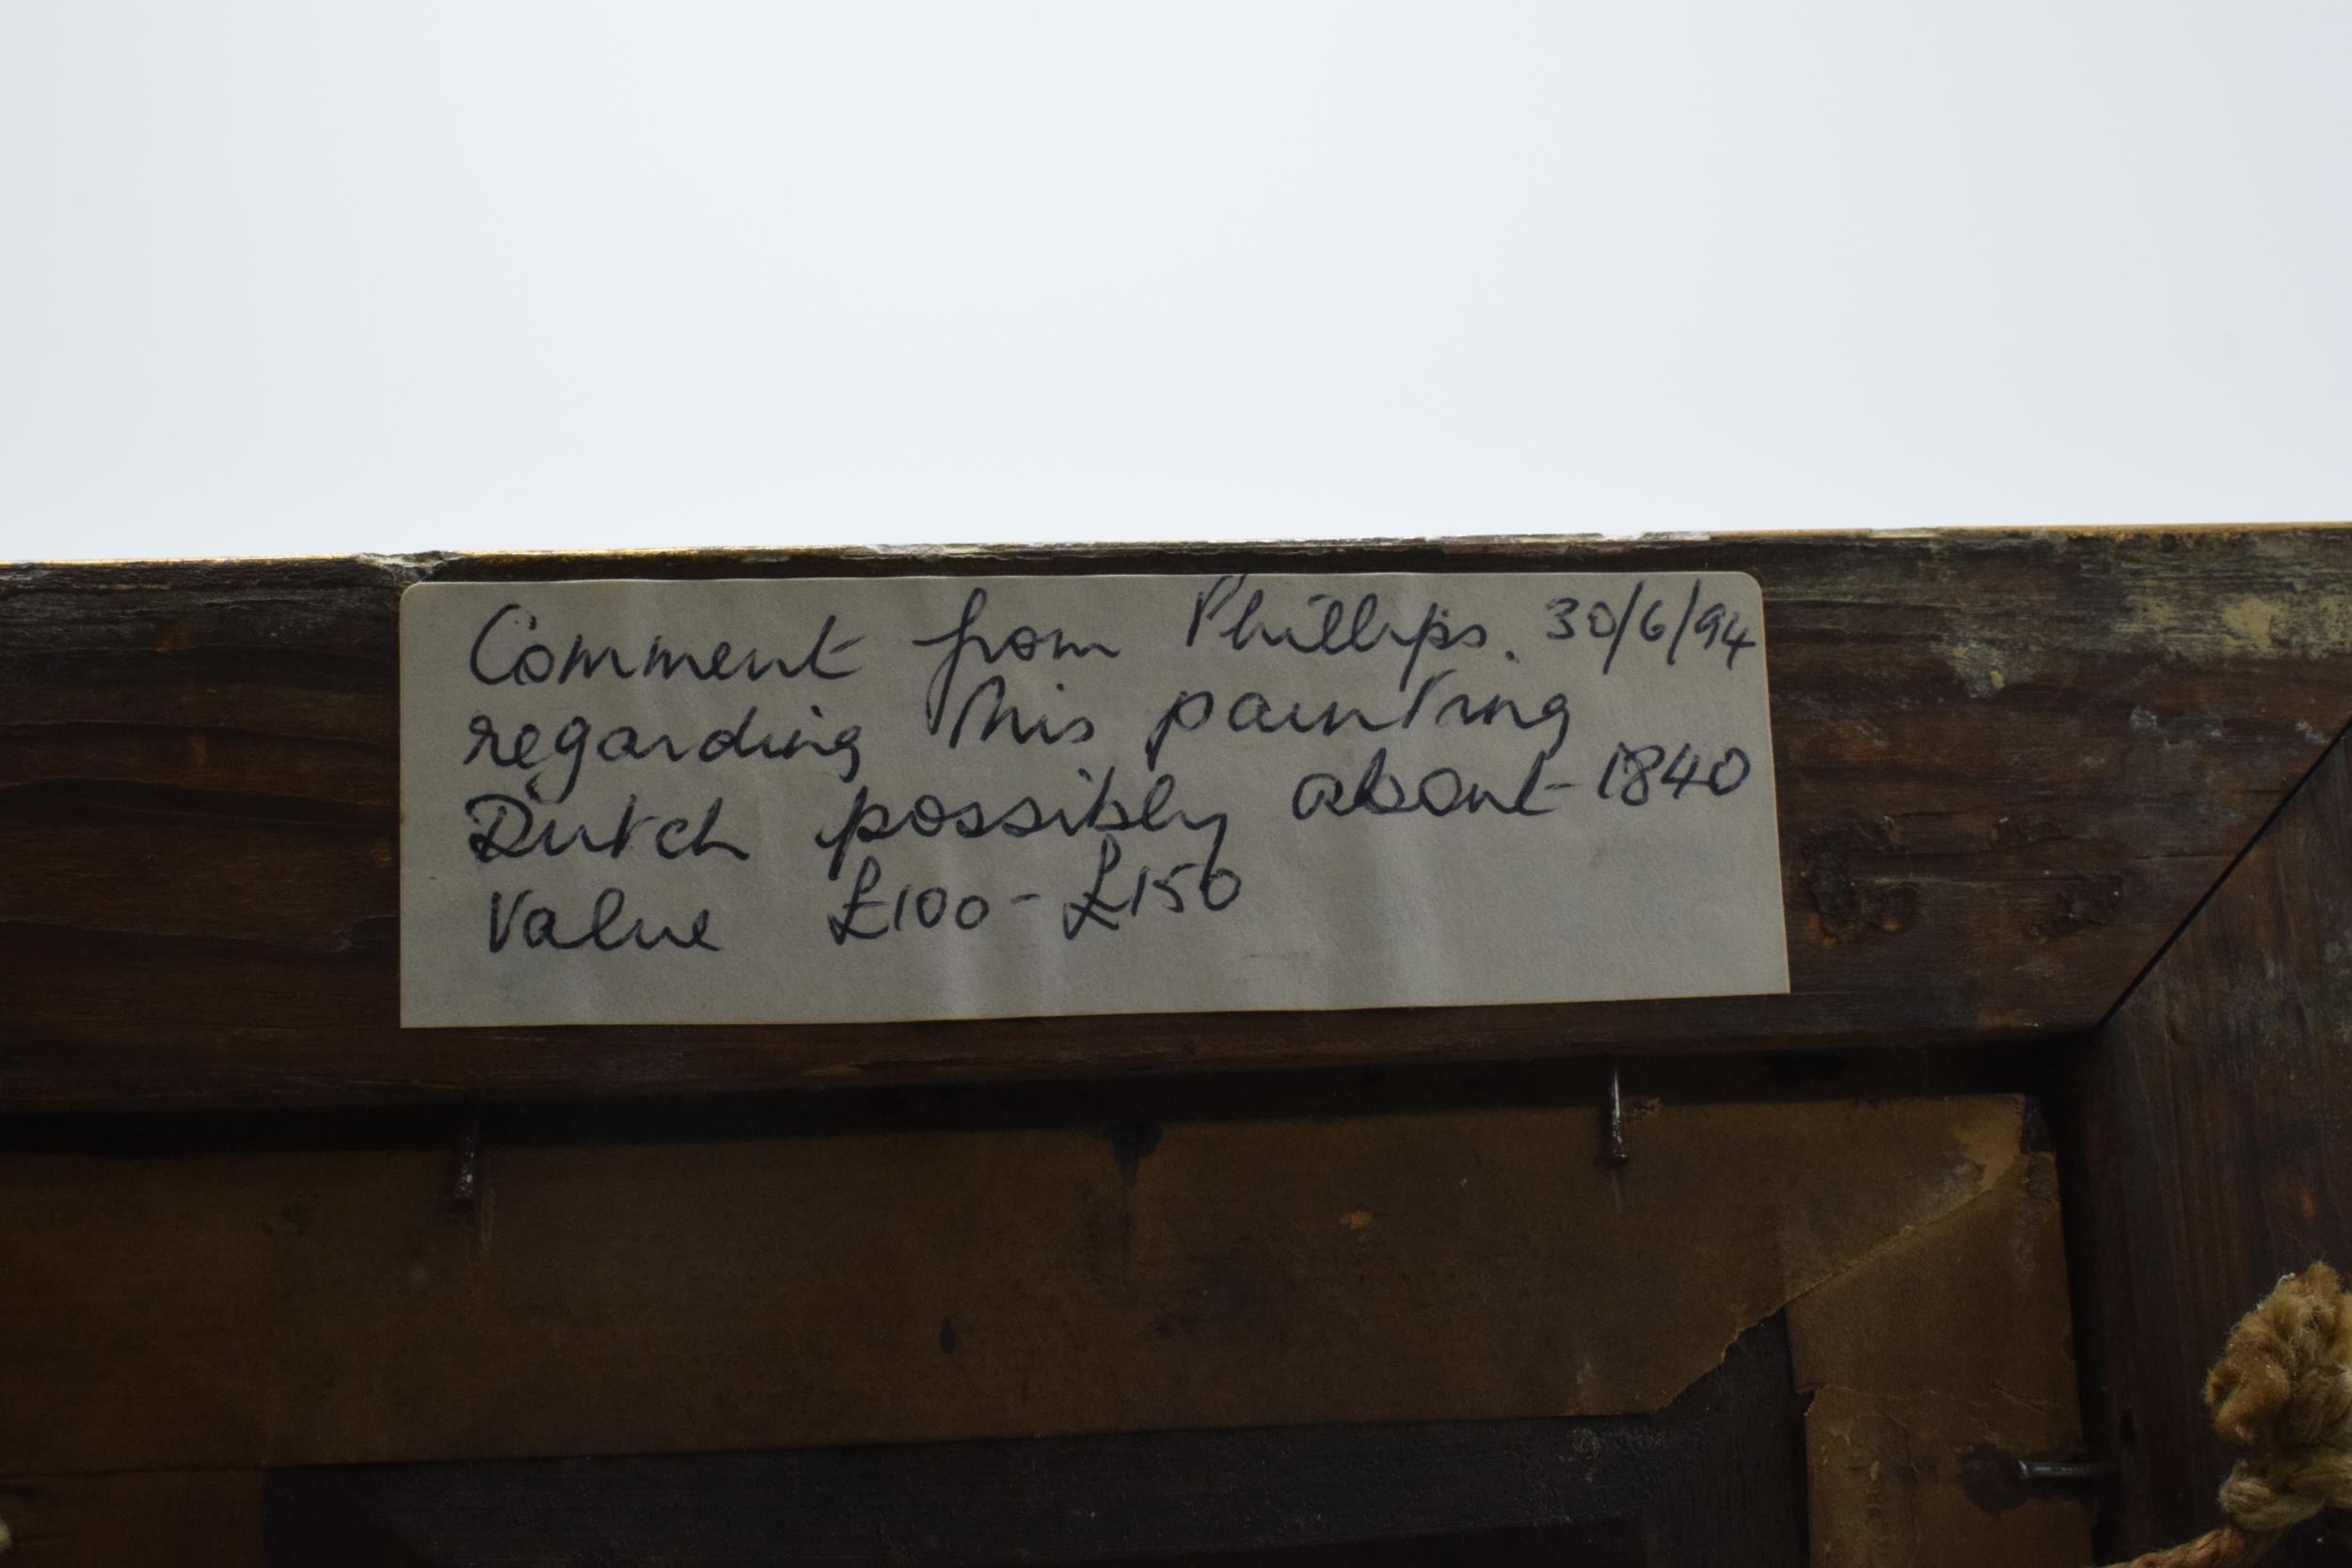 Comment from Phillips. 30/6/94
regarding this painting
Dutch possibly about 1840
Value £100 - £150